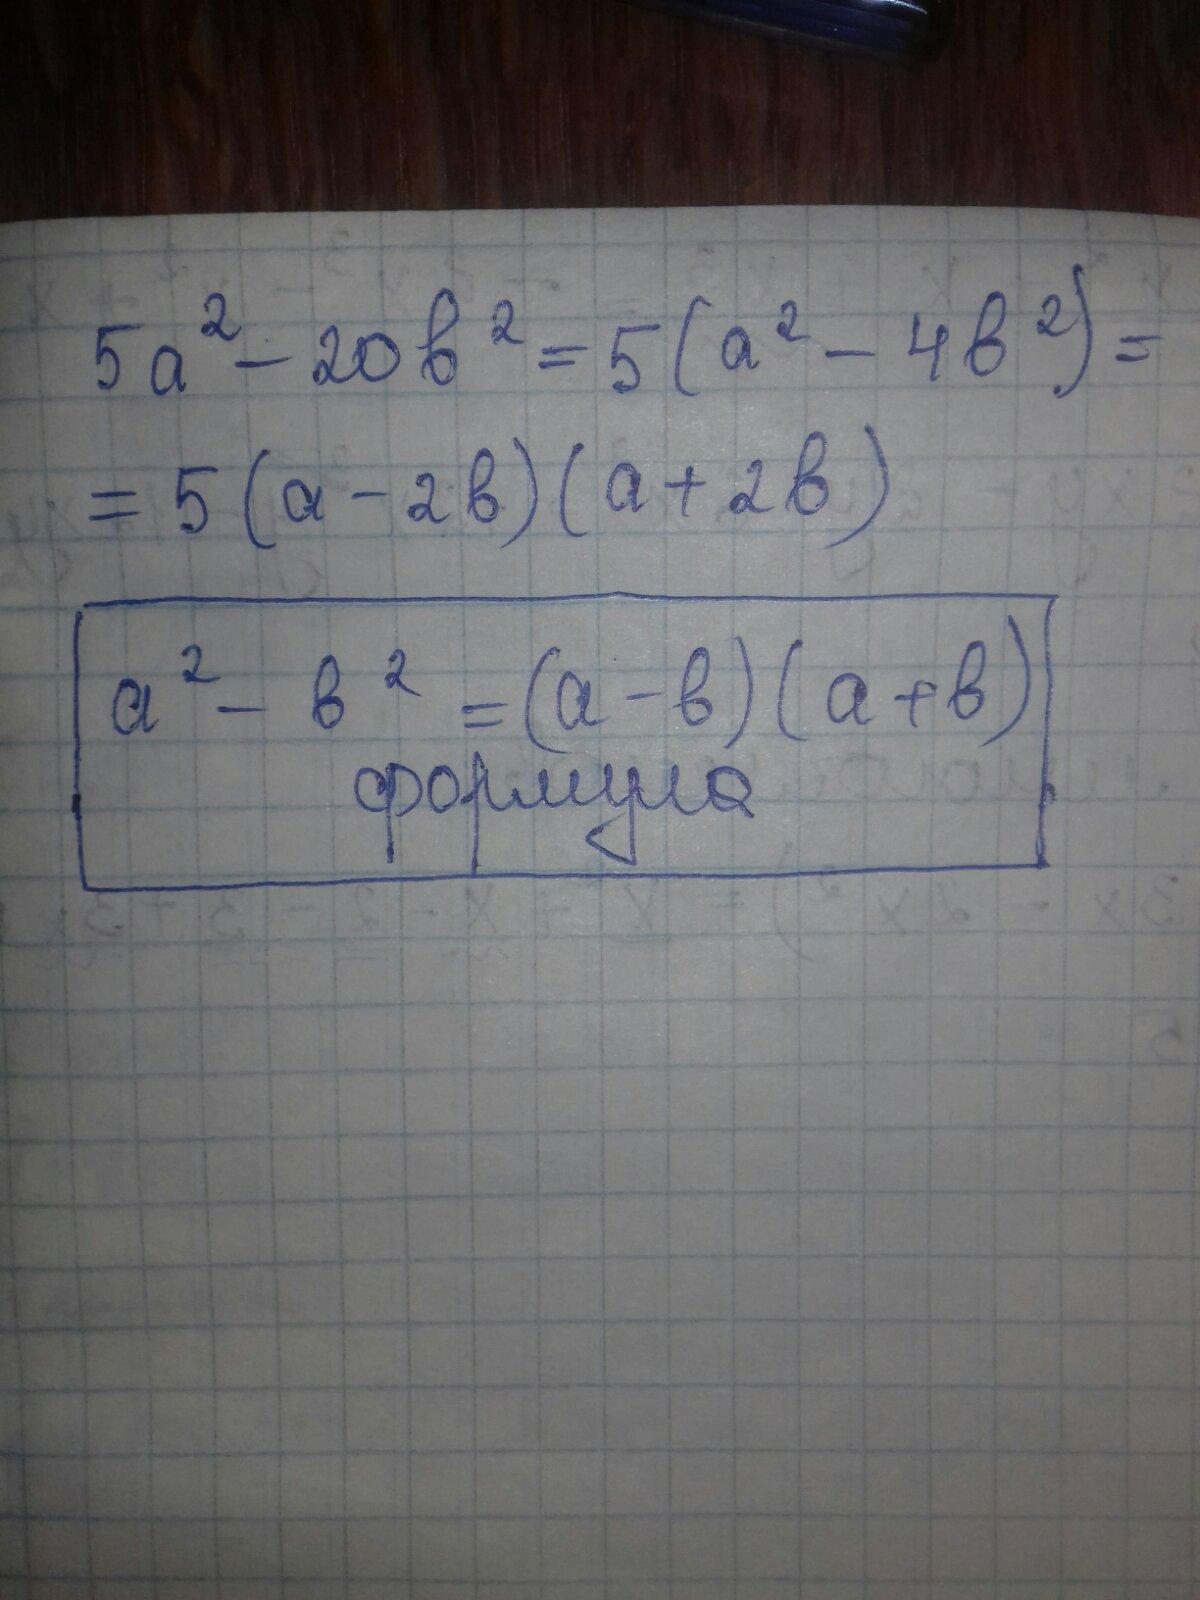 5a² - 20в² = 5(a² - 4в²) =
= 5(a - 2в)(a + 2в)
a² - в² = (a - в)(a + в)
формула